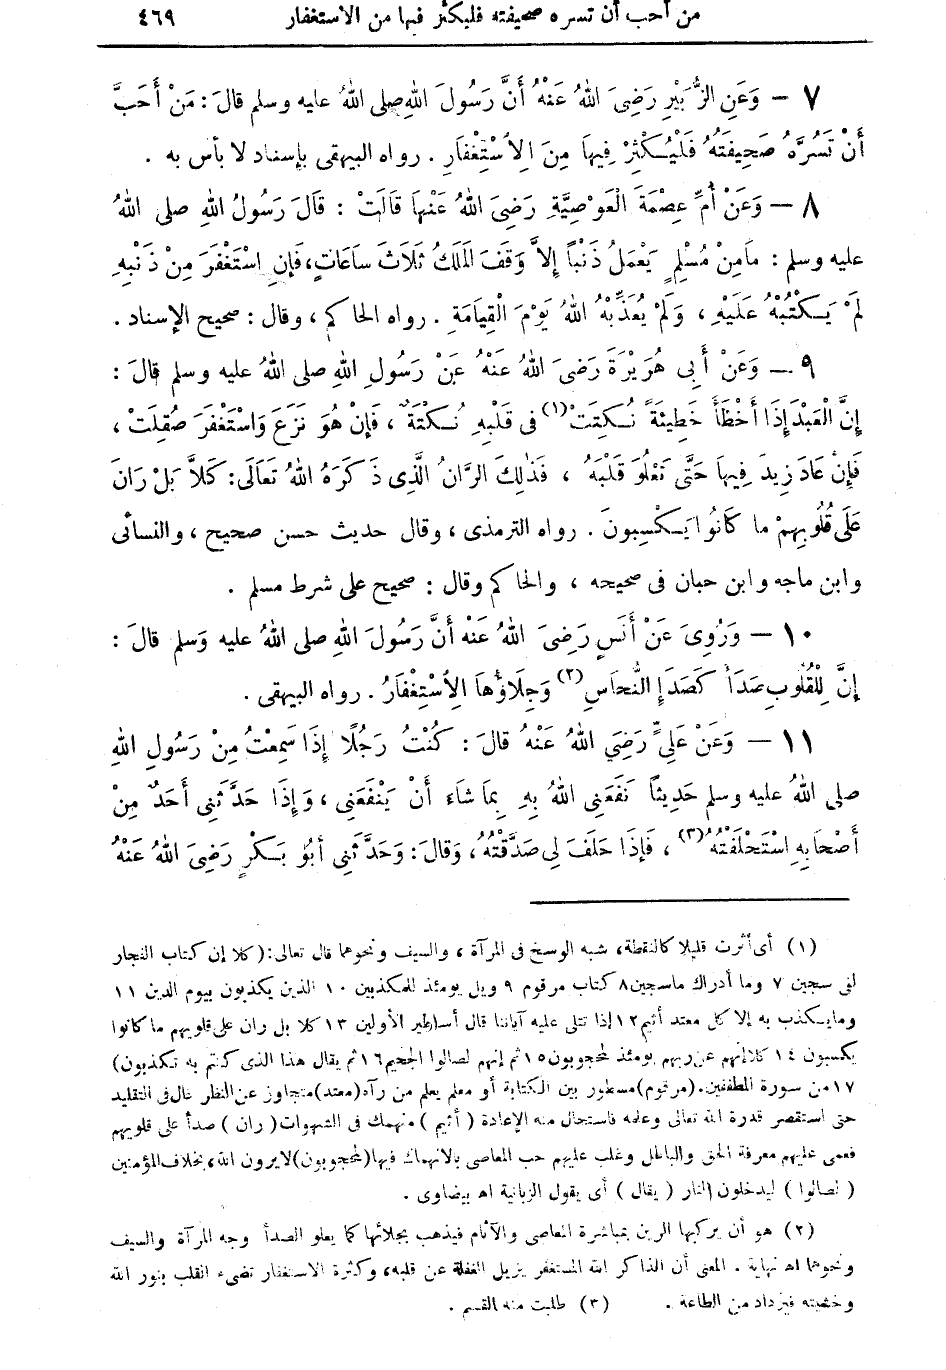 من أحب أن تسره صحيفته فليكثر فيها من الاستغفار ٤٦٩
٧ — وَعَنِ الزُّبَيْرِ رَضِىَ اللهُ عَنْهُ أَنَّ رَسُولَ اللهِ صلى اللهُ عليه وسلم قالَ: مَنْ أَحَبَّ
أَنْ تَسُرَّهُ صَحِيفَتُهُ فَلْيُكْثِرْ فِيهَا مِنَ الِاسْتِغْفَارِ. رواه البيهقى بإسناد لا بأس به .
٨ — وَعَنْ أُمِّ عِصْمَةَ الْعَوْصِيَّةِ رَضِىَ اللهُ عَنْهَا قَالَتْ : قَالَ رَسُولُ اللهِ صلى اللهُ
عليه وسلم : مَا مِنْ مُسْلِمٍ يَعْمَلُ ذَنْبًا إِلاَّ وَقَفَ الْمَلَكُ ثَلَاثَ سَاعَاتٍ، فَإِنِ اسْتَغْفَرَ مِنْ ذَنْبِهِ
لَمْ يَكْتُبْهُ عَلَيْهِ ، وَلَمْ يُعَذِّبْهُ اللهُ يَوْمَ الْقِيَامَةِ . رواه الحاكم ، وقال : صحيح الإسناد .
٩ — وَعَنْ أَبِى هُرَيْرَةَ رَضِىَ اللهُ عَنْهُ عَنْ رَسُولِ اللهِ صلى اللهُ عليه وسلم قالَ :
إِنَّ الْعَبْدَ إِذَا أَخْطَأَ خَطِيئَةً نُكِتَتْ (١) فى قَلْبِهِ نُكْتَةٌ ، فَإِنْ هُوَ نَزَعَ وَاسْتَغْفَرَ صُقِلَتْ ،
فَإِنْ عَادَ زِيدَ فِيهَا حَتَّى تَعْلُوَ قَلْبَهُ ، فَذٰلِكَ الرَّانُ الَّذِى ذَكَرَهُ اللهُ تَعَالَى: كَلاَّ بَلْ رَانَ
عَلَى قُلُوبِهِمْ مَا كَانُوا يَكْسِبُونَ . رواه الترمذى ، وقال حديث حسن صحيح ، والنسائى
وابن ماجه وابن حبان فى صحيحه ، والحاكم وقال : صحيح على شرط مسلم .
١٠ — وَرُوِىَ عَنْ أَنَسٍ رَضِىَ اللهُ عَنْهُ أَنَّ رَسُولَ اللهِ صلى اللهُ عليه وَسلم قالَ :
إِنَّ لِلْقُلُوبِ صَدَأً كَصَدَإِ النُّحَاسِ (٢) وَجِلَاؤُهَا الِاسْتِغْفَارُ . رواه البيهقى .
١١ — وَعَنْ عَلِيٍّ رَضِيَ اللهُ عَنْهُ قالَ : كُنْتُ رَجُلًا إِذَا سَمِعْتُ مِنْ رَسُولِ اللهِ
صلى اللهُ عليه وسلم حَدِيثًا نَفَعَنِى اللهُ بِهِ بِمَا شَاءَ أَنْ يَنْفَعَنِى ، وَإِذَا حَدَّثَنِى أَحَدٌ مِنْ
أَصْحَابِهِ اسْتَحْلَفْتُهُ (٣) ، فَإِذَا حَلَفَ لِى صَدَّقْتُهُ، وَقالَ: وَحَدَّثَنِى أَبُو بَكْرٍ رَضِىَ اللهُ عَنْهُ
(١) أى أثرت قليلا كالنقطة، شبه الوسخ فى المرآة ، والسيف ونحوهما قال تعالى: (كلا إن كتاب الفجار
لفى سجين ٧ وما أدراك ماسجين ٨ كتاب مرقوم ٩ ويل يومئذ للمكذبين ١٠ الذين يكذبون بيوم الدين ١١
وما يكذب به إلا كل معتد أثيم ١٢ إذا تتلى عليه آياتنا قال أساطير الأولين ١٣ كلا بل ران على قلوبهم ما كانوا
يكسبون ١٤ كلا إنهم عن ربهم يومئذ لمحجوبون ١٥ ثم إنهم لصالوا الجحيم ١٦ ثم يقال هذا الذى كنتم به تكذبون)
١٧ من سورة المطففين. (مرقوم) مسطور بين الكتابة أو معلم يعلم من رآه (معتد) متجاوز عن النظر غال فى التقليد
حتى استقصر قدرة الله تعالى وعلمه فاستحال منه الإعادة ( أثيم ) منهمك فى الشهوات ( ران ) صدأ على قلوبهم
فعمى عليهم معرفة الحق والباطل وغلب عليهم حب المعاصى بالانهماك فيها (لمحجوبون) لايرون الله، بخلاف المؤمنين
( لصالوا ) ليدخلون النار ( يقال ) أى يقول الزبانية اهـ بيضاوى .
(٢) هو أن يركبها الرين بمباشرة المعاصى والآثام فيذهب بجلائها كما يعلو الصدأ وجه المرآة والسيف
ونحوهما اهـ نهاية . المعنى أن الذاكر الله المستغفر يزيل الغفلة عن قلبه، وكثرة الاستغفار تضىء القلب بنور الله
وخشيته فيزداد من الطاعة . (٣) طلبت منه القسم .